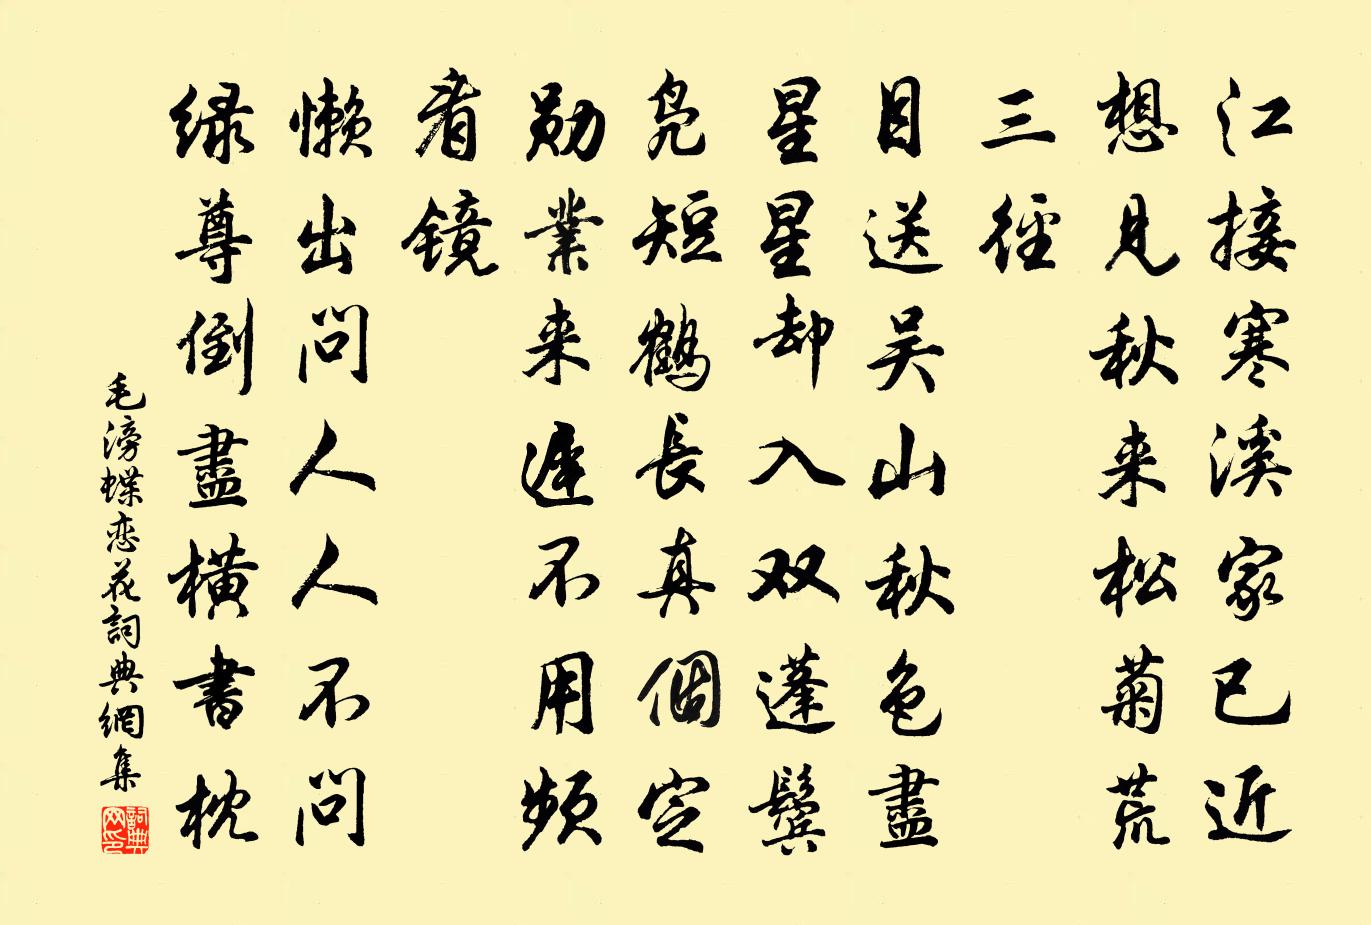 江接寒溪家已近
想見秋来松菊荒
三徑
目送吴山秋色盡
星星却入双蓬鬢
凫短鶴長真個定
勋業来遲不用頻
看镜
懒出问人人不问
绿尊倒盡横書枕
毛滂蝶恋花詞典網集
詞典网印